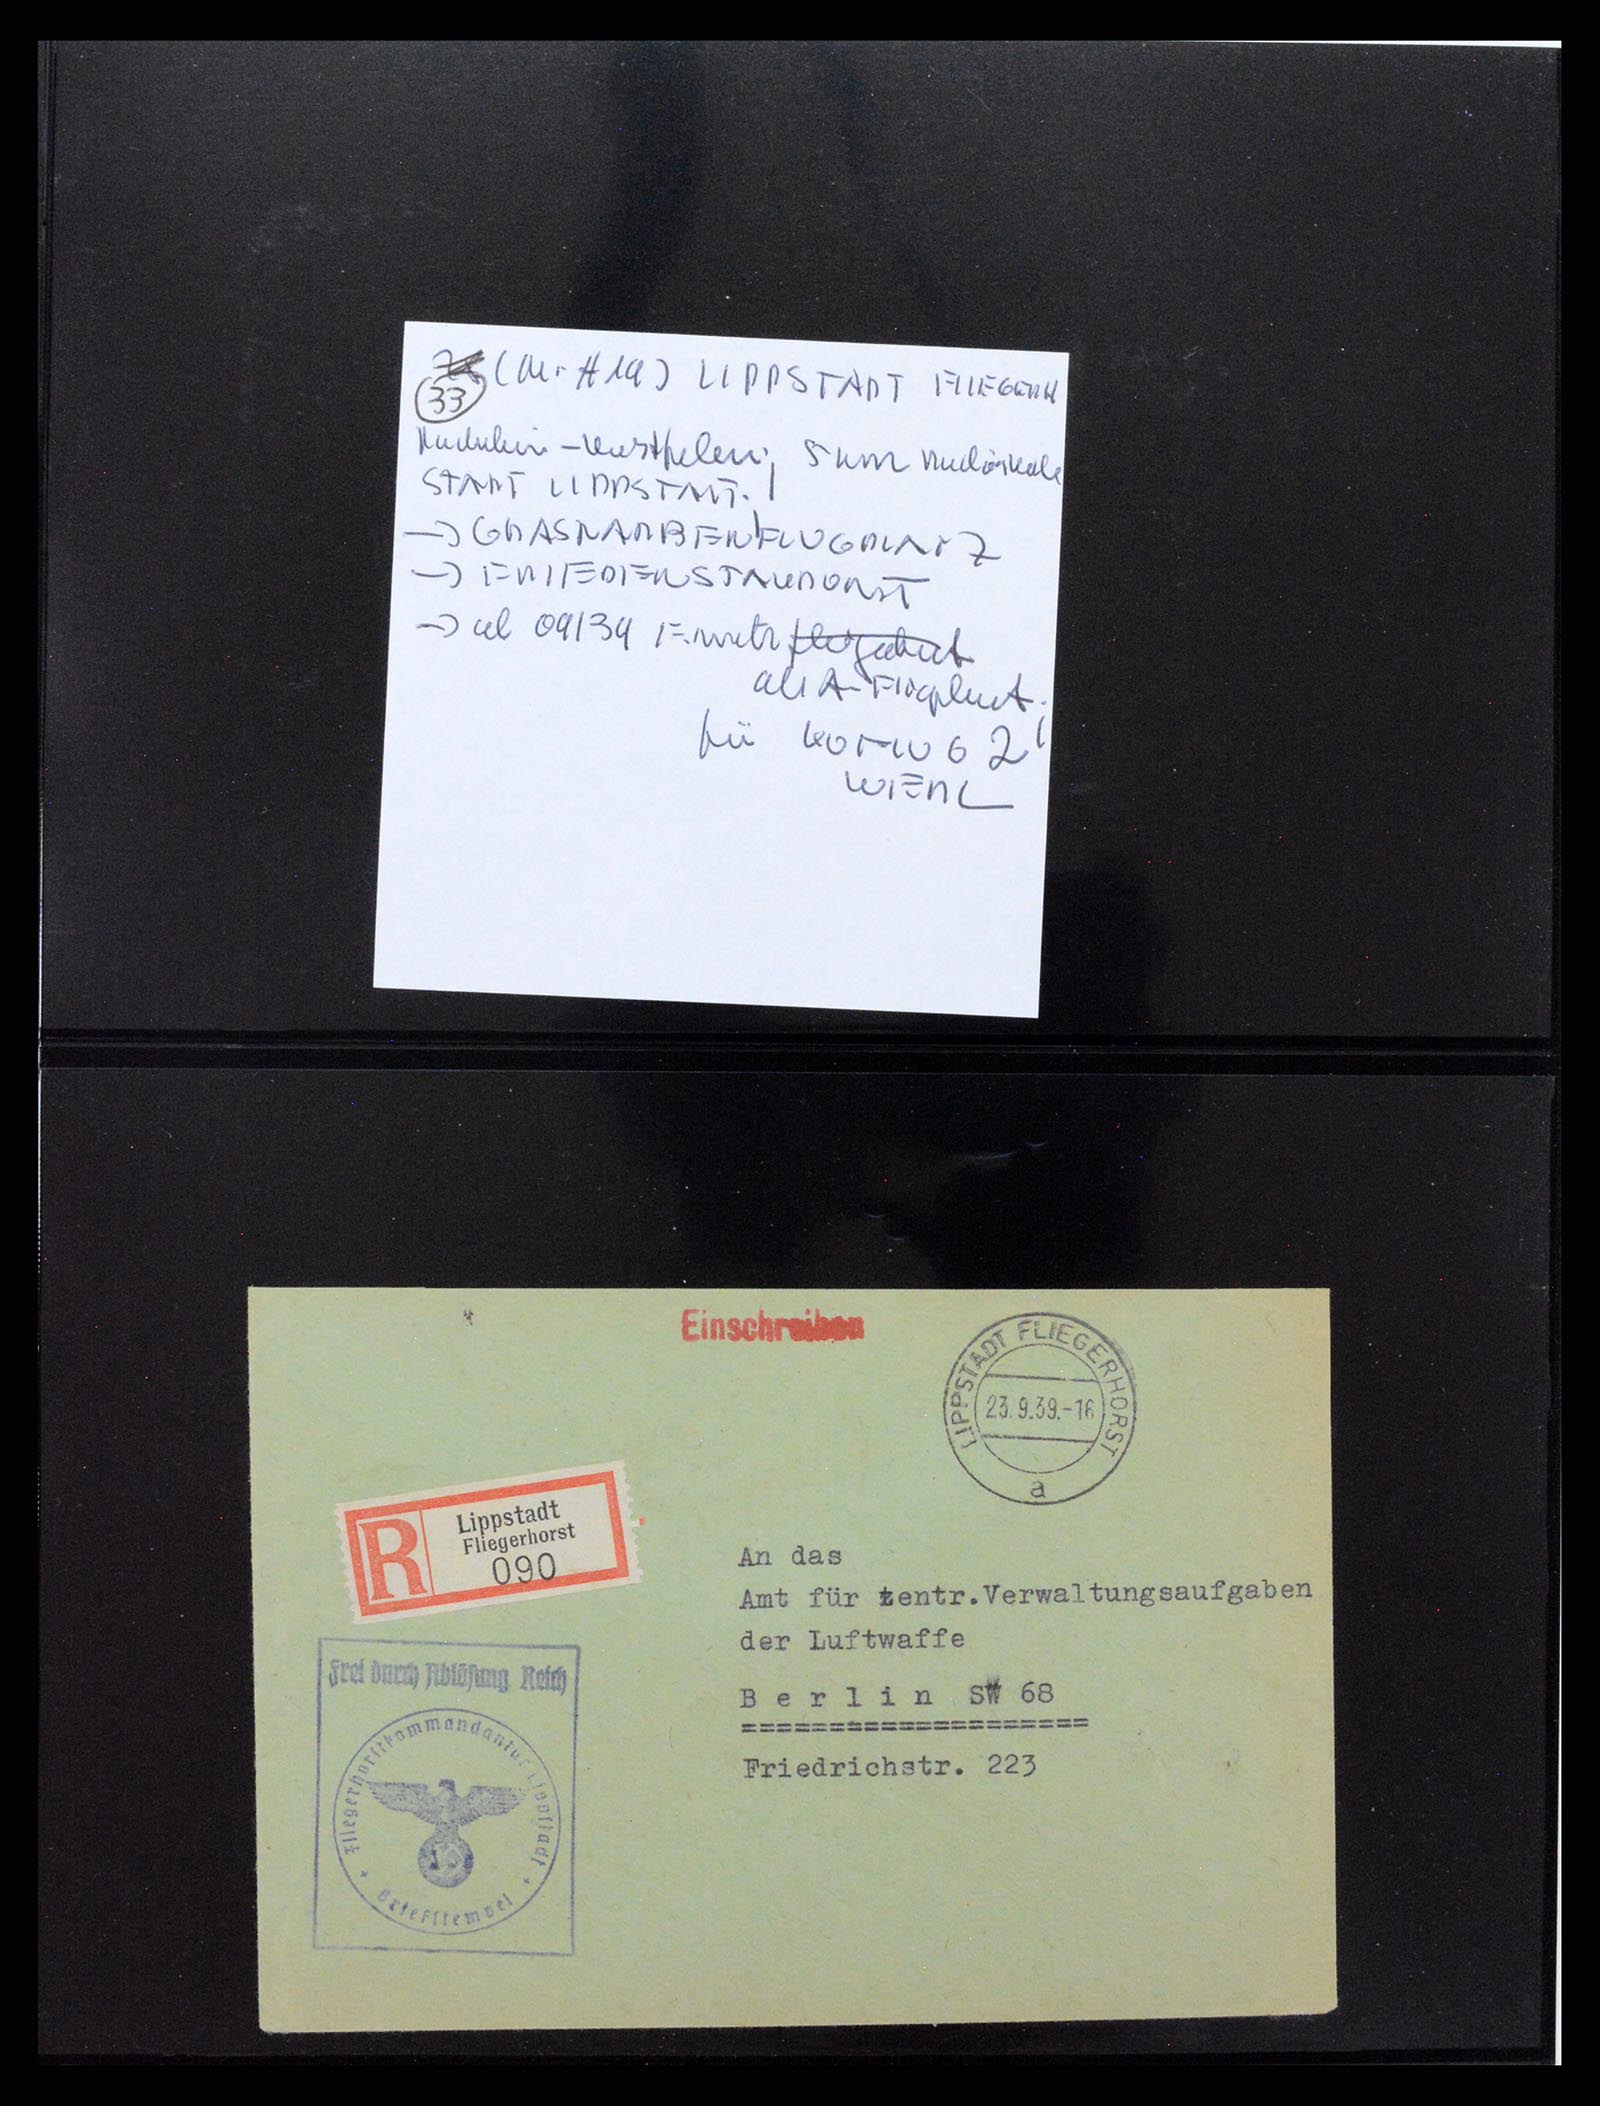 33
LIPPSTADT FLIEGERH
5 km
STADT LIPPSTADT.
→ GRASNARBENFLUGPLATZ
→ FRIEDENSSTANDORT
→ ab 09/39
als A-Flugplatz
für 2
WIEDL
Einschreiben
LIPPSTADT FLIEGERHORST
23.9.39.-16
a
R
Lippstadt
Fliegerhorst
090
An das
Amt für zentr.Verwaltungsaufgaben
der Luftwaffe
Berlin SW 68
=====================
Friedrichstr. 223
Frei durch Ablösung Reich
Fliegerhorstkommandantur Lippstadt
Briefstempel